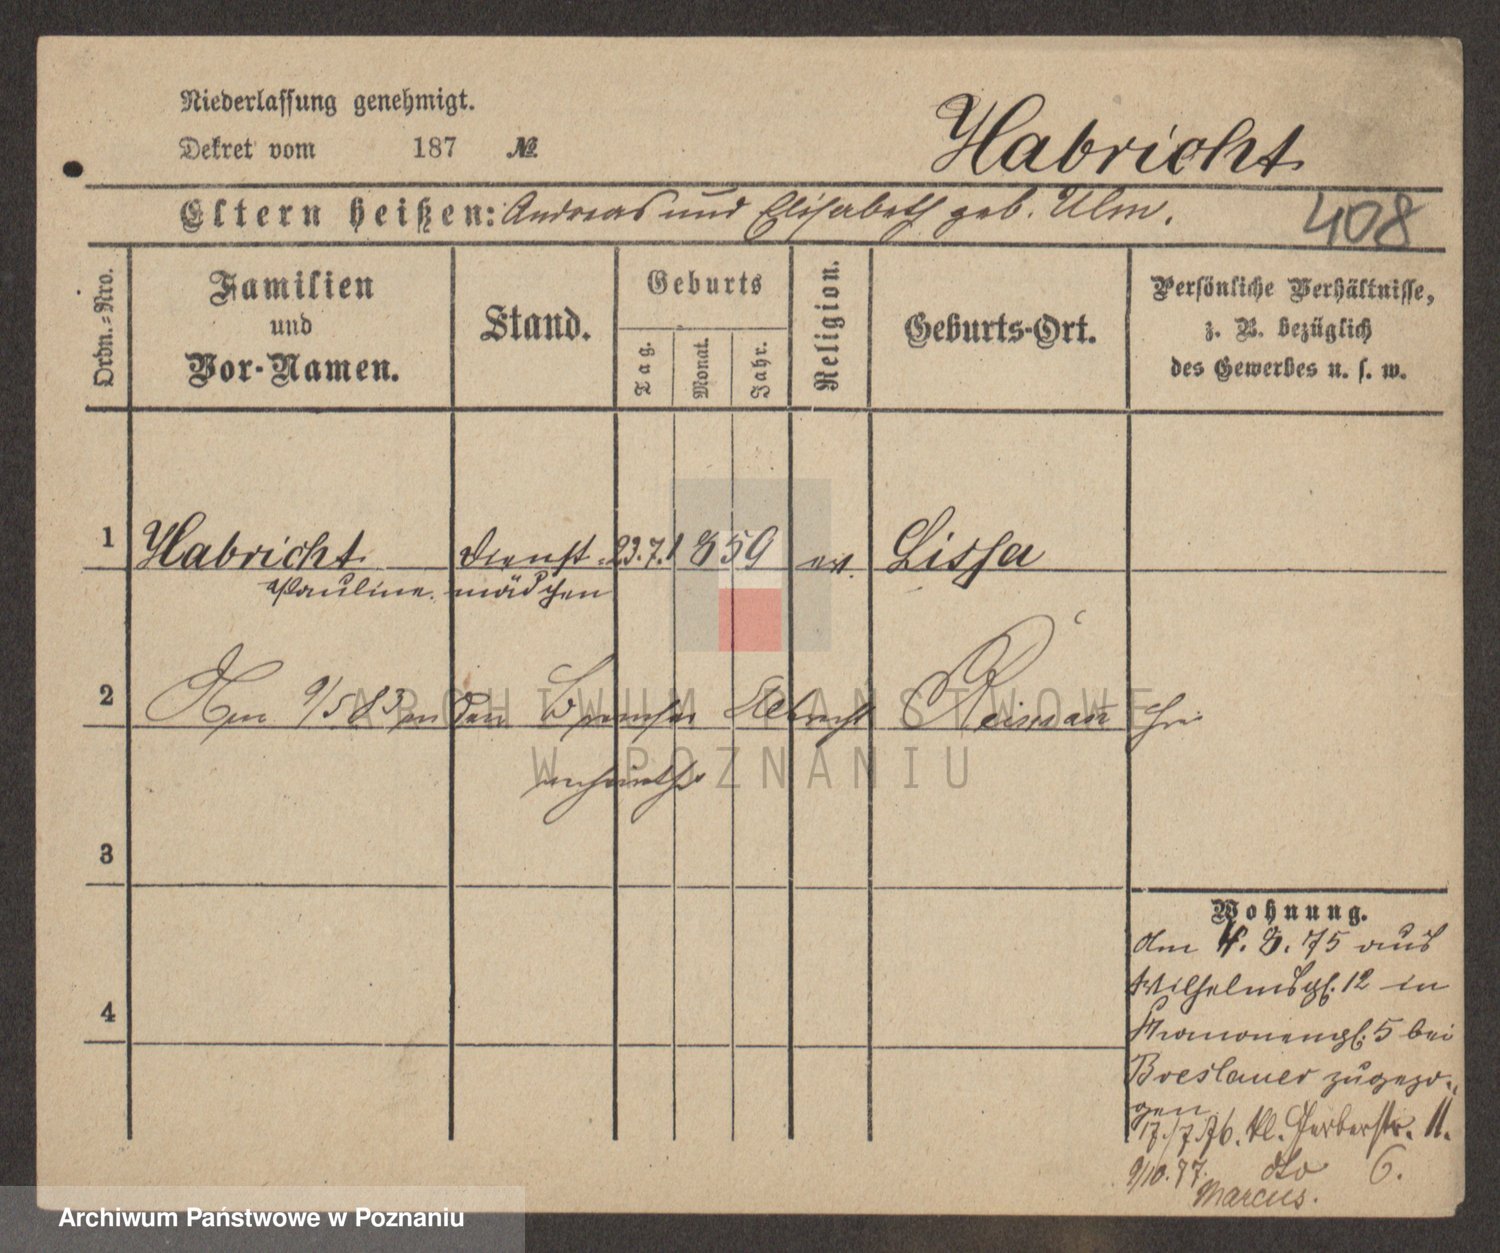 Niederlassung genehmigt.
Dekret vom 187 №
Habricht
Eltern heißen: Andreas und Elisabeth geb. Ulm.
408
Ordn.-Nro.
Familien
und
Vor-Namen.
Stand.
Geburts
Tag.
Monat.
Jahr.
Religion.
Geburts-Ort.
Persönliche Verhältnisse,
z. B. bezüglich
des Gewerbes u. s. w.
1 Habricht Dienst- 23.7.1859 ev. Lissa
Pauline. mädchen
2 Am 9/5 83 an den Albrecht Reimann
ARCHIWUM PAŃSTWOWE
W POZNANIU
3
4
Wohnung.
Am 4. 8. 75 aus
Wilhelmspl. 12 in
5 bei
Breslauer zugezo-
gen
17./7.76. kl. Gerberstr. 11.
9/10.77. dto 6.
Marcus.
Archiwum Państwowe w Poznaniu